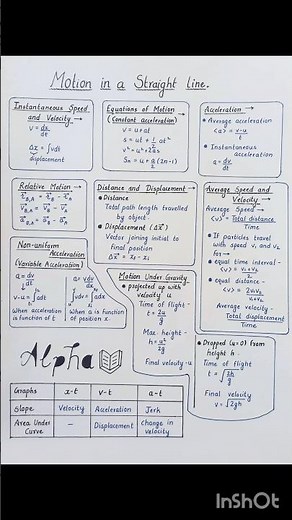 Motion in a Straight Line.
Instantaneous Speed
and Velocity →
v = dx/dt
Δx = ∫vdt
displacement
Equations of Motion →
(Constant acceleration)
v = u + at
s = ut + 1/2 at²
v² = u² + 2as
Sn = u + a/2 (2n-1)
Acceleration →
• Average acceleration
<a> = v-u/t
• Instantaneous
acceleration
a = dv/dt
Relative Motion →
Distance and Displacement →
• Distance
Total path length travelled
by object.
• Displacement (Δx)
Vector joining initial to
final position
Average Speed and
Velocity →
Average Speed
<v> = Total distance/Time
• If particles travel
with speed v₁ and v₂
for →
• equal time interval-
<v> = v₁+v₂/2
• equal distance-
<v> = 2v₁v₂/v₁+v₂
Average velocity-
Total displacement/Time
Non-uniform
Acceleration
(Variable Acceleration) →
a = dv/dt
v-u = ∫adt
When acceleration
is function of t
a = vdv/dx
∫vdv = ∫adx
When a is function
of position x.
Motion Under Gravity
• projected up with
velocity u
Time of flight-
t = 2u/g
Max. height-
h = u²/2g
Final velocity-u
• Dropped (u=0) from
height h.
Time of flight
t = √2h/g
Final velocity
v = √2gh
Alpha
Graphs x-t v-t a-t
Slope Velocity Acceleration Jerk
Area Under Curve – Displacement change in velocity
InShOt